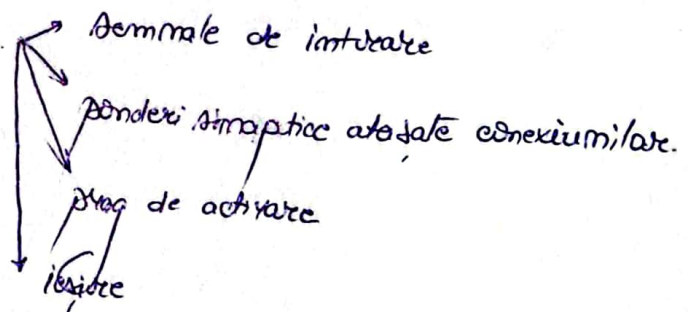 semnale de intrare
ponderi sinaptice atașate conexiunilor.
prag de activare
ieșire